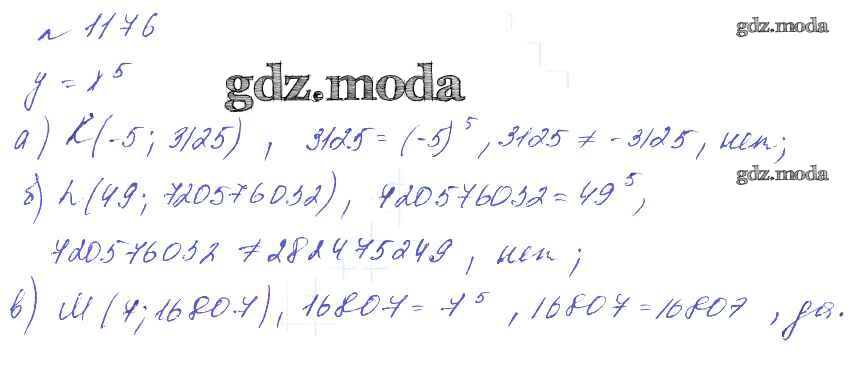 № 1176
gdz.moda
y = x⁵
gdz.moda
а) K(-5; 3125), 3125 = (-5)⁵, 3125 ≠ -3125, нет;
gdz.moda
б) L(49; 720576032), 720576032 = 49⁵,
720576032 ≠ 282475249, нет;
в) M(7; 16807), 16807 = 7⁵, 16807 = 16807, да.